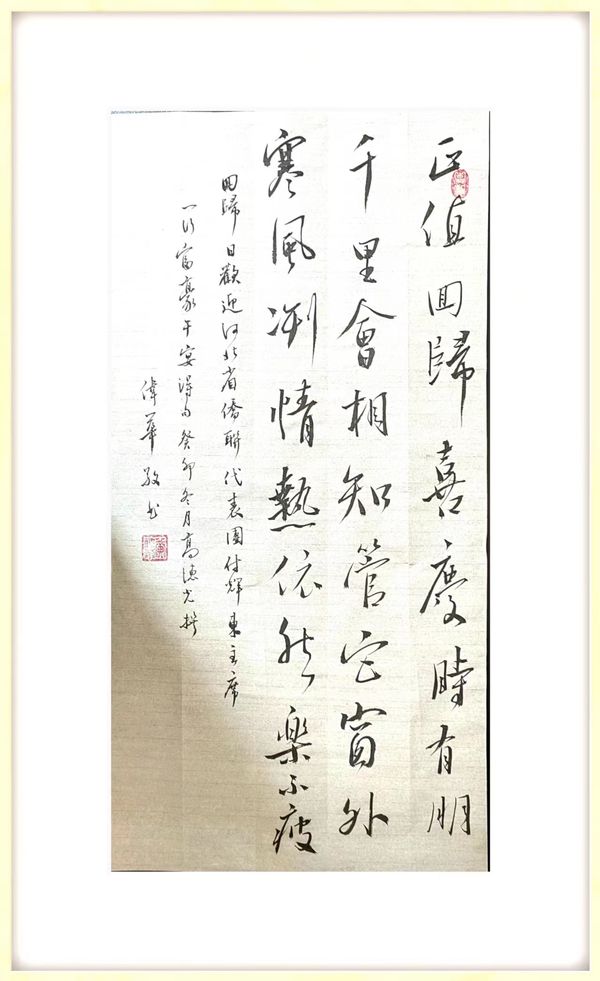 正值回歸喜慶時有朋
千里會相知管它窗外
寒風冽情熱依然樂不疲
回歸日歡迎河北省僑聯代表團付輝東主席
一行富豪午宴得句癸卯冬月高德光撰
偉華敬書